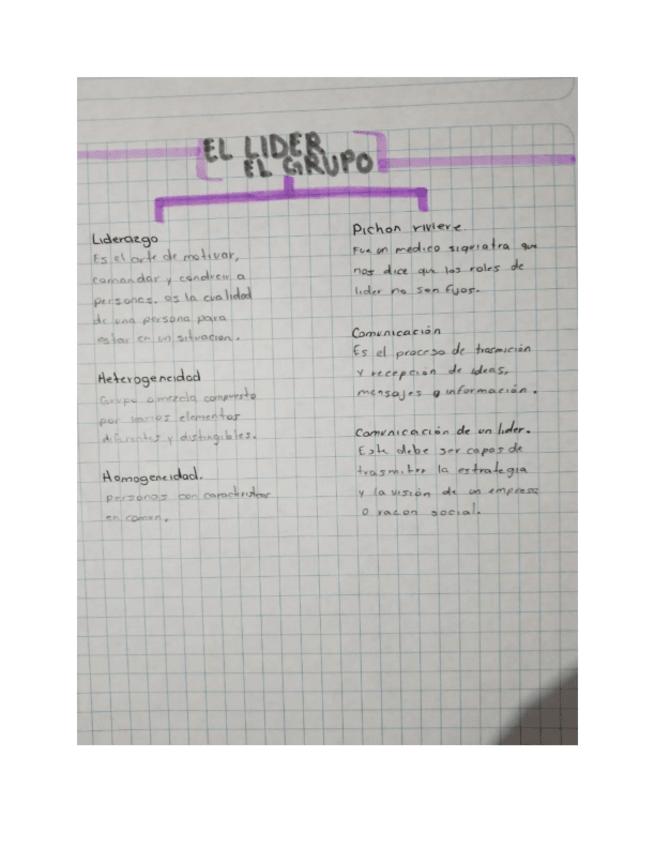 EL LIDER
EL GRUPO
Liderazgo
Es el arte de motivar,
comandar y conducir a
personas. es la cualidad
de una persona para
estar en un situacion.
Heterogeneidad
Grupo o mezcla compuesto
por varios elementos
diferentes y distingibles.
Homogeneidad.
personas con caracteristicas
en comun.
Pichon riviere
Fue un medico siquiatra que
nos dice que los roles de
lider no son fijos.
Comunicación
Es el proceso de trasmición
y recepción de ideas,
mensajes o información.
Comunicación de un lider.
Este debe ser capas de
trasmitir la estrategia
y la visión de un empresa
o razon social.